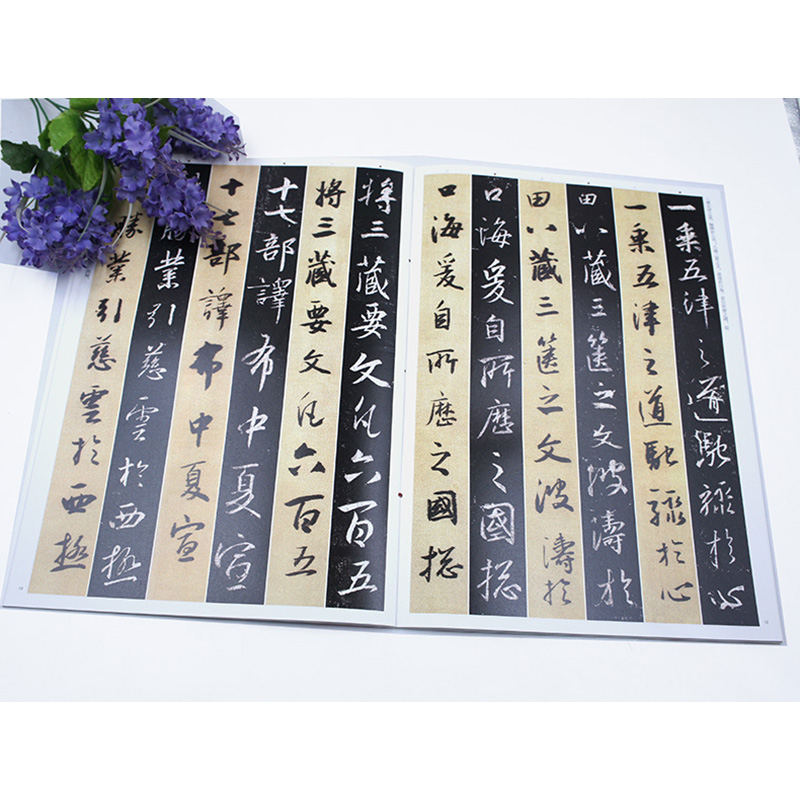 一乘五津之道馳驟於心
一乘五津之道馳驟於心
田八藏三篋之文波濤於
田八藏三篋之文波濤於
口海爰自所歷之國揔
口海爰自所歷之國揔
將三藏要文凡六百五
將三藏要文凡六百五
十七部譯布中夏宣
十七部譯布中夏宣
勝業引慈雲於西極
勝業引慈雲於西極